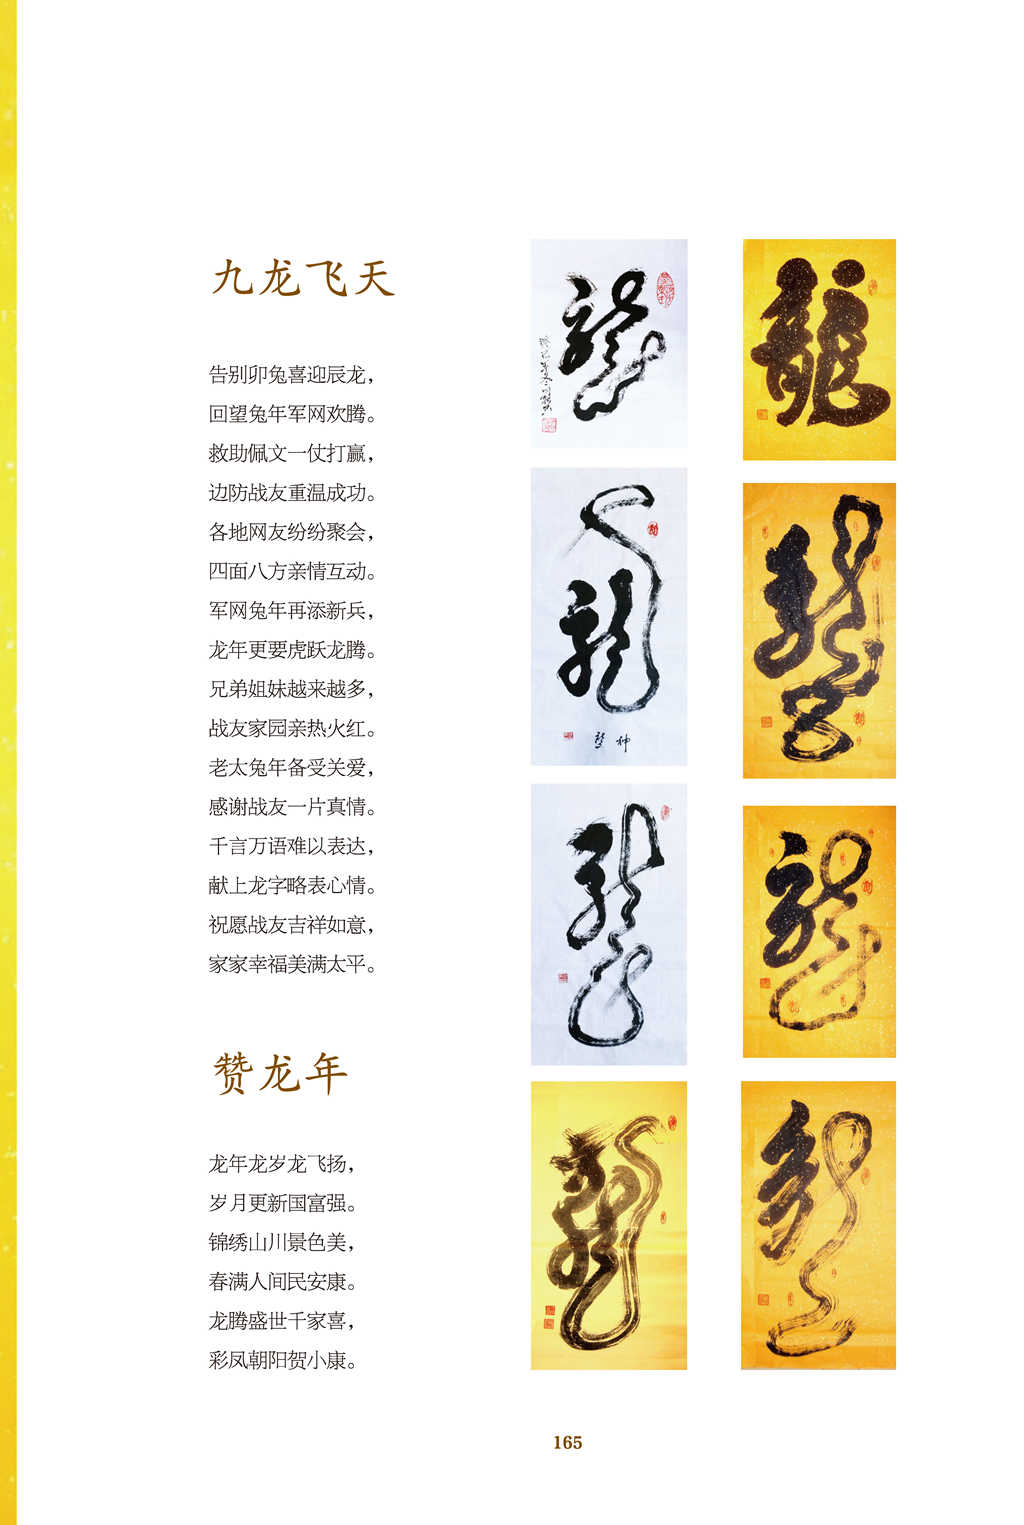 九龙飞天
告别卯兔喜迎辰龙，
回望兔年军网欢腾。
救助佩文一仗打赢，
边防战友重温成功。
各地网友纷纷聚会，
四面八方亲情互动。
军网兔年再添新兵，
龙年更要虎跃龙腾。
兄弟姐妹越来越多，
战友家园亲热火红。
老太兔年备受关爱，
感谢战友一片真情。
千言万语难以表达，
献上龙字略表心情。
祝愿战友吉祥如意，
家家幸福美满太平。
赞龙年
龙年龙岁龙飞扬，
岁月更新国富强。
锦绣山川景色美，
春满人间民安康。
龙腾盛世千家喜，
彩凤朝阳贺小康。
龍
龍
龍
神龍
龍
龍
龍
龍
龍
165